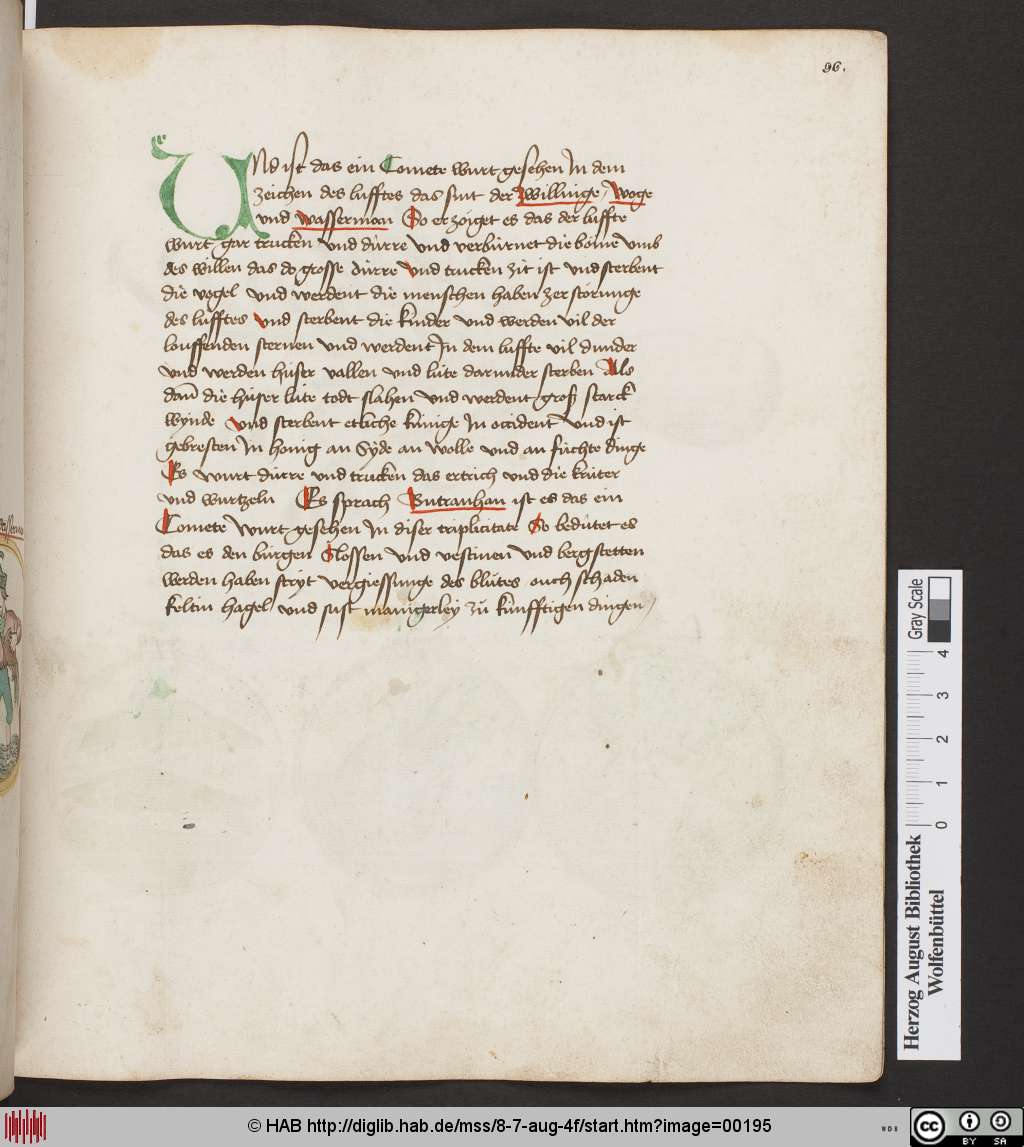 96.
UNd ist das ein Comete wurt gesehen In dem
zeichen des lufftes das sint der zwillinge / woge
und wasserman So erzöiget es das der luffte
wurt gar trucken und dürre und verbürnet die böime umb
des willen das do grosse dürre und trucken zit ist und sterbent
die vogel und werdent die menschen haben zerstörunge
des lufftes und sterbent die kinder und werden vil der
louffenden sternen und werdent In dem luffte vil dunder
und werden hüser vallen und lüte darunder sterben Als
dan̄ die hüser lüte todt slahen und werdent groß starck
wynde und sterbent etliche künige In occident und ist
gebresten In honig an Syde an wolle und an füchte dinge
Es wurt dürre und trucken das ertrich und die krüter
und wurtzeln Es sprach ist es das ein
Comete wurt gesehen In diser triplicitate So bedütet es
das es den bürgen Slossen und vestinen und bergstetten
werden haben stryt vergiessunge des blütes ouch schaden
keltin hagel und sust manigerley zü künfftigen dingen /
Gray Scale
0 1 2 3 4
Herzog August Bibliothek
Wolfenbüttel
© HAB http://diglib.hab.de/mss/8-7-aug-4f/start.htm?image=00195
WDB
cc BY SA